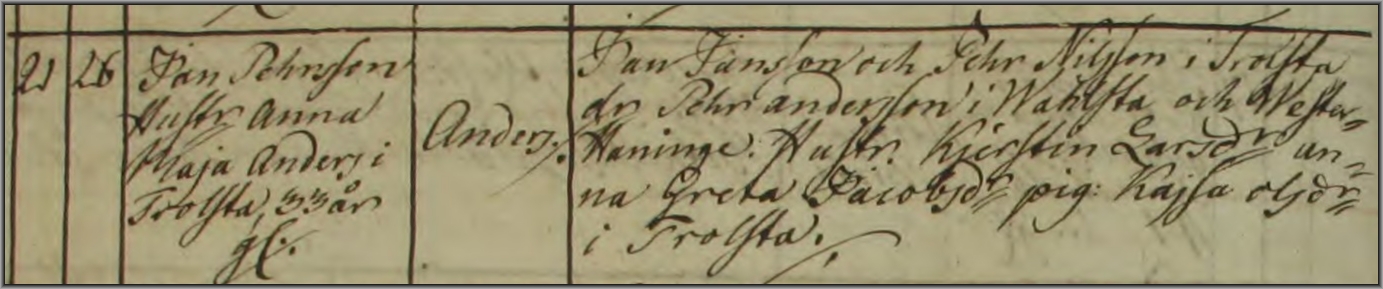 21 26 Jan Pehrsson
Hustr Anna
Maja Anders i
Trolsta, 33 år
gl.
Anders.
Jan Jansson och Pehr Nilsson i Trolsta
dr Pehr andersson i Wahlsta och Wester=
Haninge. Hustr. Kjerstin Larsdr an=
na Greta Jacobsdr pig: Kajsa olsdr
i Trolsta.